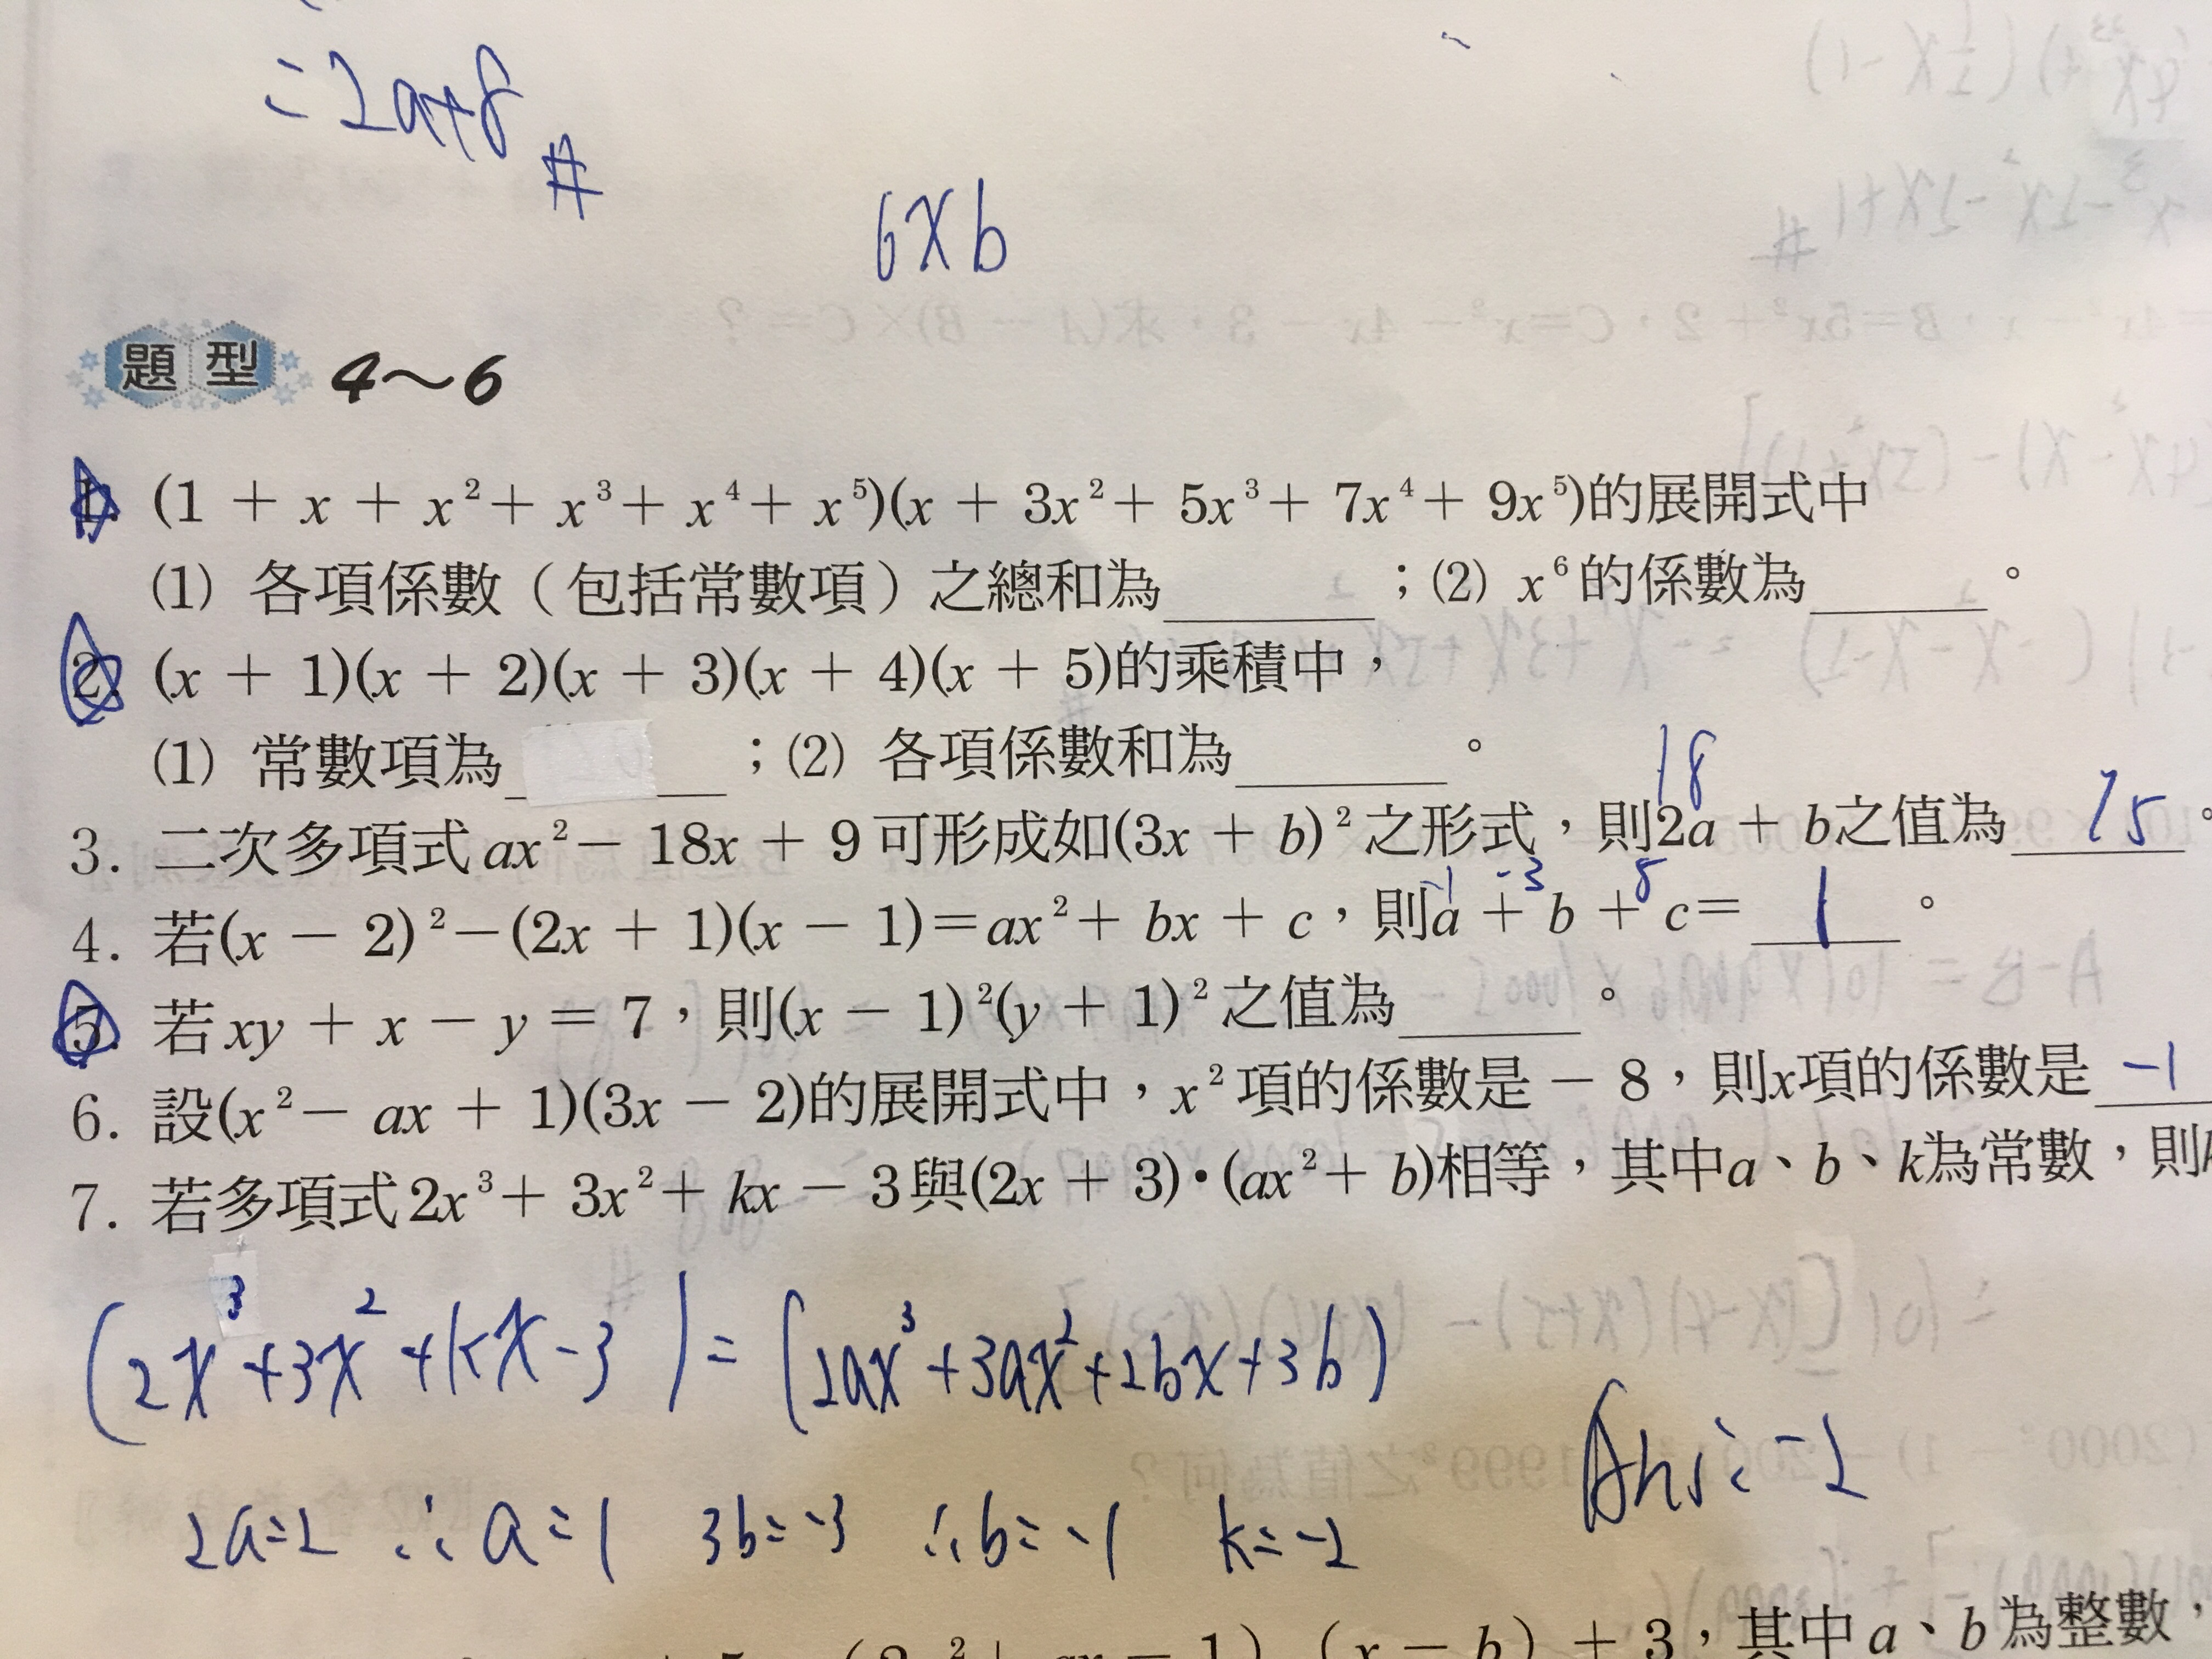 =2a+8 #
6xb
題型 4～6
1. (1 + x + x²+ x³+ x⁴+ x⁵)(x + 3x²+ 5x³+ 7x⁴+ 9x⁵)的展開式中
(1) 各項係數（包括常數項）之總和為______；(2) x⁶的係數為______。
2. (x + 1)(x + 2)(x + 3)(x + 4)(x + 5)的乘積中，
(1) 常數項為______；(2) 各項係數和為______。
18
3. 二次多項式ax²− 18x + 9可形成如(3x + b)²之形式，則2a + b之值為 15 。
-1 -3 8
4. 若(x − 2)²−(2x + 1)(x − 1)=ax²+ bx + c，則a + b + c= 1 。
5. 若xy + x − y = 7，則(x − 1)²(y + 1)²之值為______。
6. 設(x²− ax + 1)(3x − 2)的展開式中，x²項的係數是− 8，則x項的係數是 -1
7. 若多項式2x³+ 3x²+ kx − 3與(2x + 3)•(ax²+ b)相等，其中a、b、k為常數，則
(2x³+3x²+kx-3)=(2ax³+3ax²+2bx+3b)
Ans:-2
2a=2 ∴a=1 3b=-3 ∴b=-1 k=-2
(x − b) + 3，其中a、b為整數，